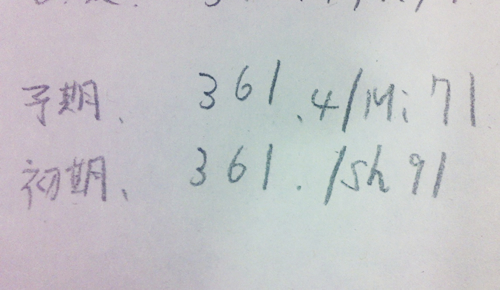 予期、 361.4/Mi71
初期、 361./Sh91